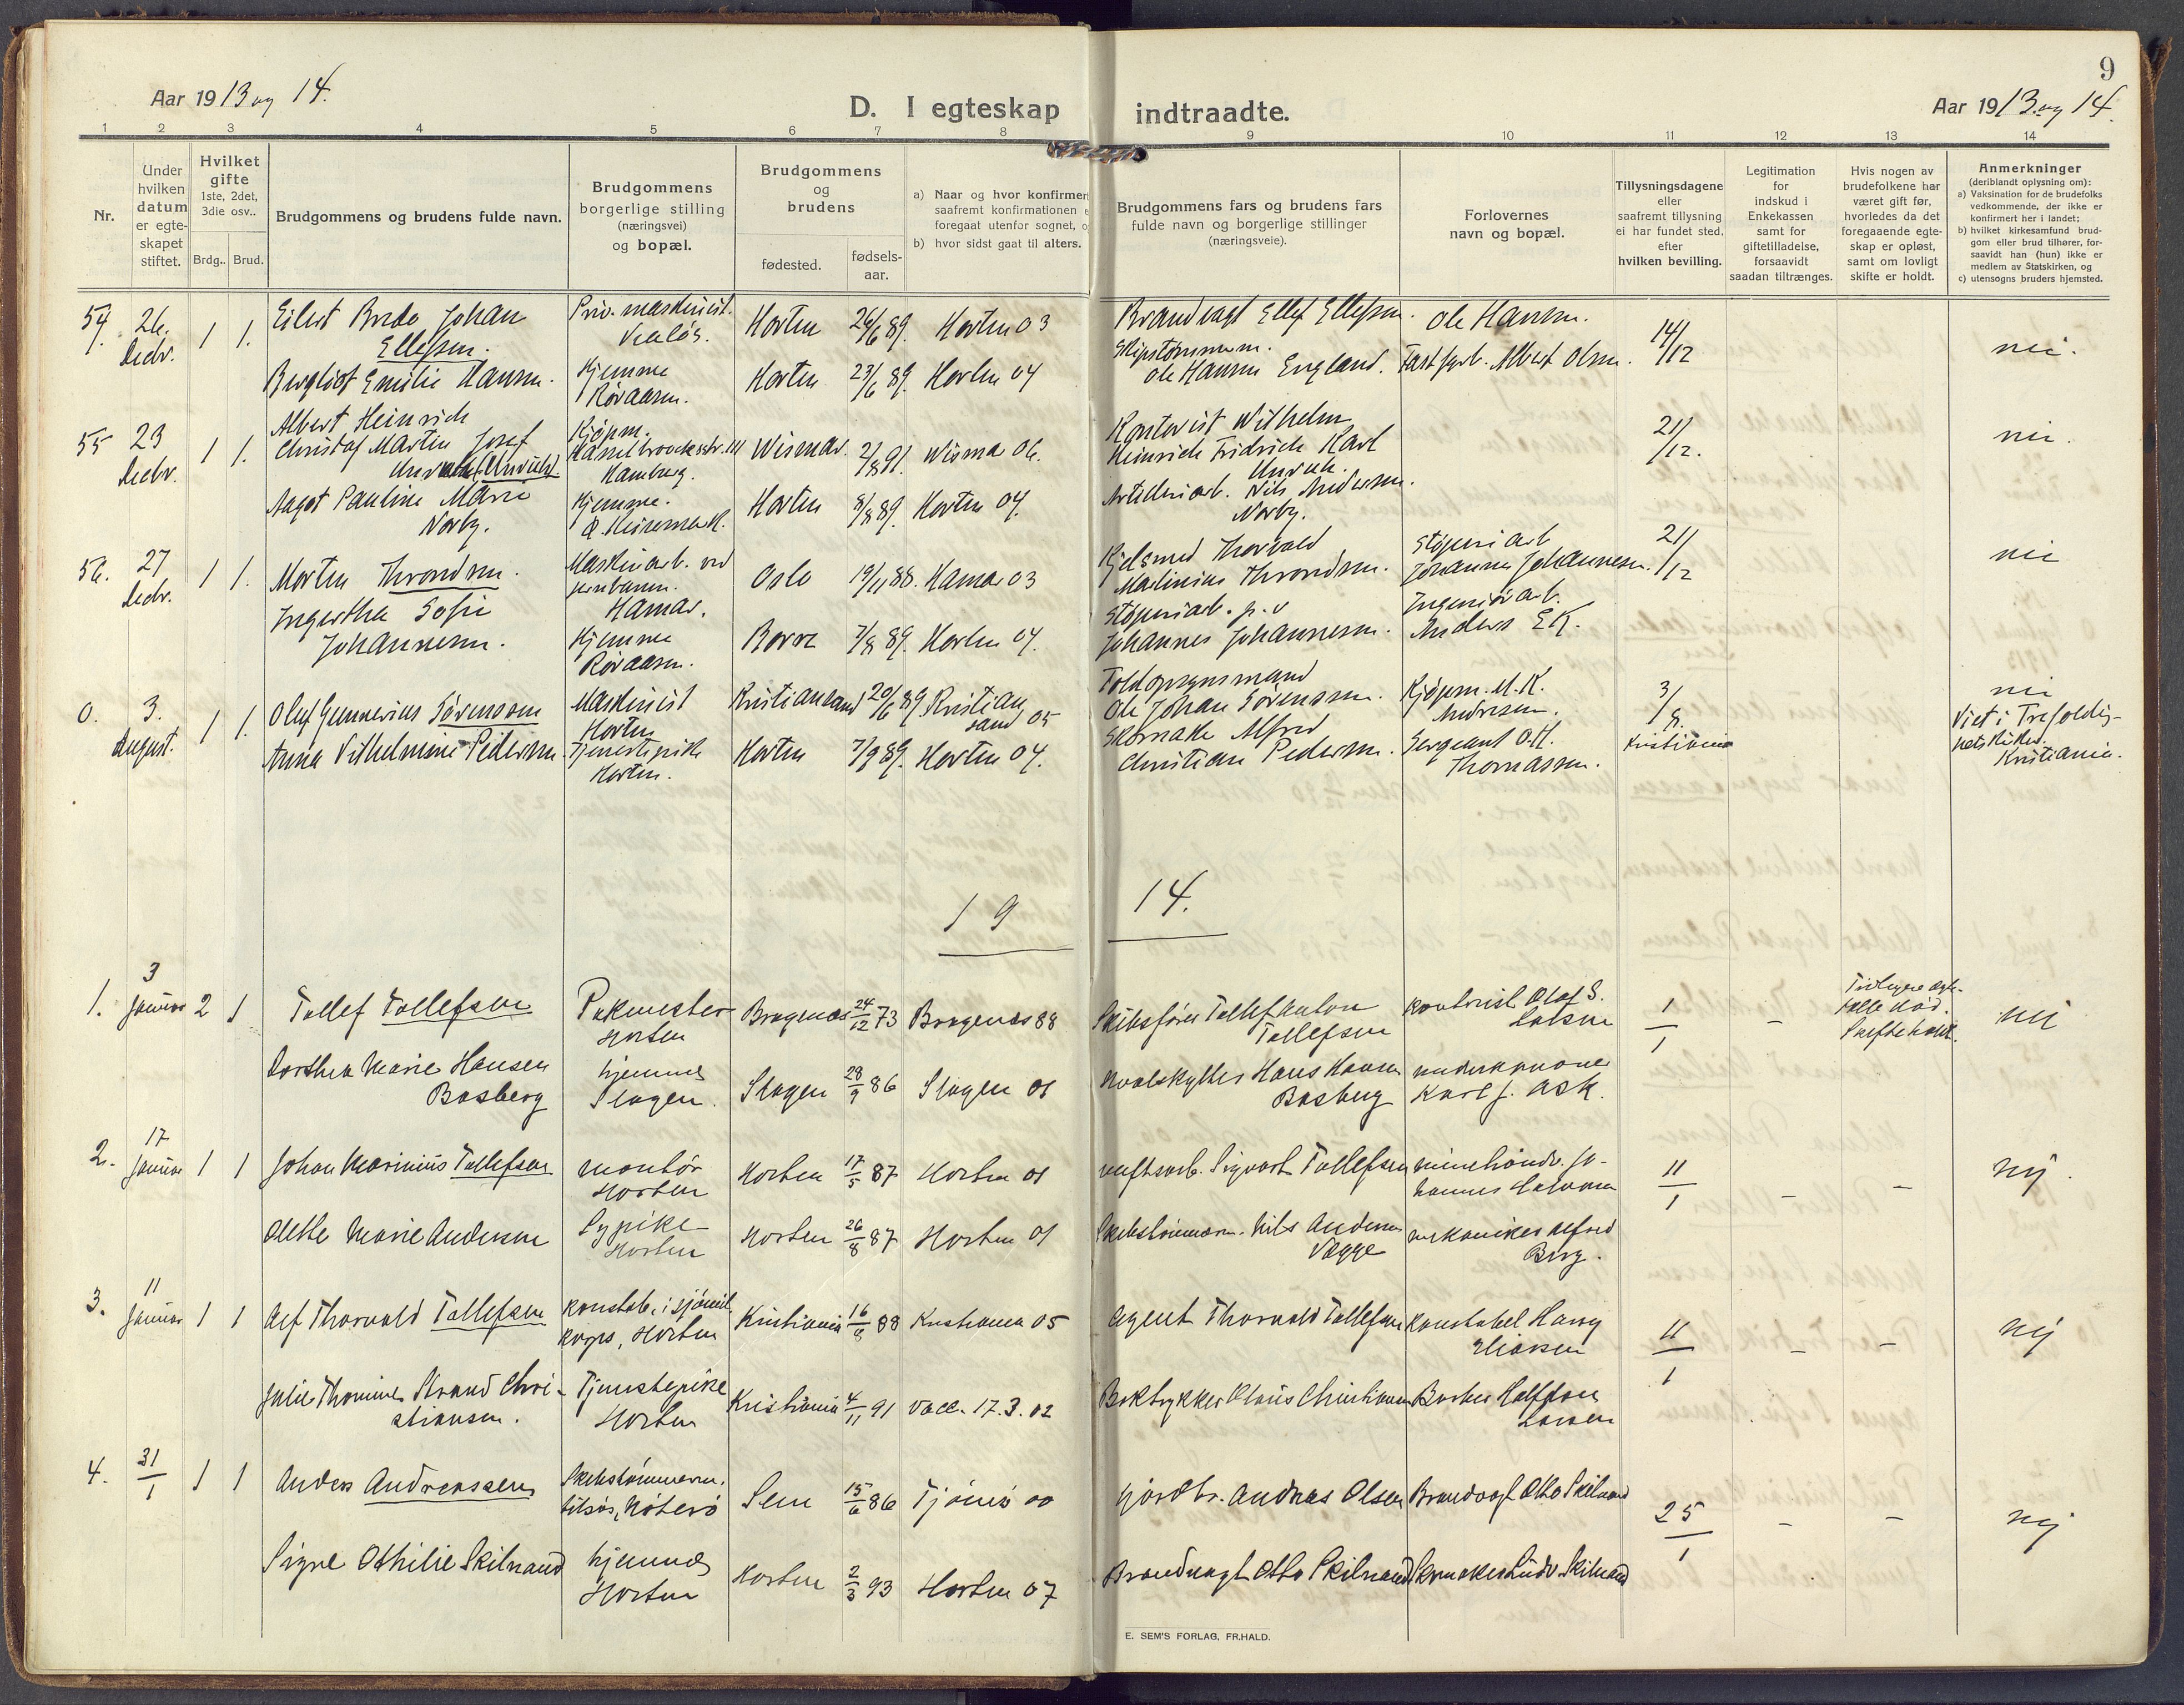 9
Aar 1913 og 14.
D. I egteskap indtraadte.
Aar 1913 og 14.
1 2 3 4 5 6 7 8 9 10 11 12 13 14
Nr.
Under hvilken datum er egte-skapet stiftet.
Hvilket gifte 1ste, 2det, 3die osv..
Brdg.. Brud.
Brudgommens og brudens fulde navn.
Brudgommens borgerlige stilling (næringsvei) og bopæl.
Brudgommens og brudens
fødested.
fødsels-aar.
a) Naar og hvor konfirmert
saafremt konfirmationen
foregaat utenfor sognet,
b) hvor sidst gaat til alters.
Brudgommens fars og brudens fars
fulde navn og borgerlige stillinger
(næringsveie).
Forlovernes
navn og bopæl.
Tillysningsdagene
eller
saafremt tillysning
ei har fundet sted,
efter
hvilken bevilling.
Legitimation
for
indskud i
Enkekassen
samt for
giftetilladelse,
forsaavidt
saadan tiltrænges.
Hvis nogen av
brudefolkene har
været gift før,
hvorledes da det
foregaaende egte-
skap er opløst,
samt om lovligt
skifte er holdt.
Anmerkninger
(deriblandt oplysning om):
a) Vaksination for de brudefolks
vedkommende, der ikke er
konfirmert her i landet;
b) hvilket kirkesamfund brud-
gom eller brud tilhører, for-
saavidt han (hun) ikke er
medlem av Statskirken, og
c) utensogns bruders hjemsted.
54. 26. Decbr. 1 1. Eilert Johan Ellefsen. Priv. maskinist. Horten 26/6 89. Horten 03 Brandvagt Ellef Ellefsen. Ole Hansen. 14/12 nei.
Bergliot Emilie Hansen. Hjemme Røraasen. Horten 23/6 89. Horten 04 Skipstømmerm. Ole Hansen England. Albert Olsen.
55 23 Decbr. 1 1. Albert Heinrich Christof Martin Josef Kjøpm. Hamburg. Wismar. 2/8 91. Wisma 06. Kontorist Wilhelm Heinrich Fridrich Karl Unruh. 21/12. nei.
Aagot Pauline Marie Norby. Hjemme. Horten 8/8 89. Horten 04. Artilleriarb. Nils Andersen Norby.
56. 27 Decbr. 1 1. Morten Throndsen. Maskinarb. ved jernbanen. Hamar. Oslo 19/11 88. Hamar 03 Kjelsmed Thorvald Martinius Throndsen. Støperiarb Johannes Johannesen. 21/12 nei
Ingertha Sofie Johannesen. Hjemme Røraasen. Borre 7/8 89. Horten 04. Støperiarb. p. v Johannes Johannesen. Ingeniørarb. Anders Ek.
0. 3. August. 1 1. Oluf Gunnerius Sørensen Maskinist Horten Kristiansand 20/6 89 Kristiansand 05 Toldopsynsmand Ole Johan Sørenssen. Kjøpm. M. K. Andresen. 3/8. Kristiania nei Viet i Trefoldig-hets kirken. Kristiania.
Anna Vilhelmine Pedersen. Tjenestepike Horten. Horten 7/9 89. Horten 04. Skomake Alfred Christian Pedersen. Sergeant O.H. Thomassen.
19 14.
1. 3 Januar 2 1 Tollef Tollefsen Pakmester Horten Bragenæs 24/12 73 Bragenæs 88 Skibsfører Tollef Anton Tollefsen Kontorist Olaf S. 1/1 – Skifte holdt. nei
Dorthea Marie Hansen Basberg hjemme Slagen. Slagen 28/9 86 Slagen 01 Hvalskytter Hans Hansen Basberg underkanoner Karl J. Ask.
2. 17 Januar 1 1 Johan Marinius Tollefsen montør Horten Horten 17/5 87 Horten 01 verftsarb. Sigvart Tollefsen 11/1 – – nej.
Olette Marie Andersen Sypike Horten Horten 26/8 87 Horten 01 Skibstømmerm. Nils Andersen Vegge mekaniker Alfred Berg.
3. 11 Januar 1 1 Alf Thorvald Tollefsen konstab. i sjømil. korps, Horten Kristiania 16/8 88 Kristiania 05 Agent Thorvald Tollefsen konstabel Harry Eliassen 11/1 – – nej
Julie Thomine Strand Chri-stiansen. Tjenestepike Horten Kristiania 4/11 91 vacc. 17.3.02 Boktrykker Claus Christiansen Barber Halfdan Larsen
4. 31/1 1 1 Anders Andreassen Skibstømmerm. tilsøs, Nøterø Sem 15/6 86 Tjømø 00 Gjordbr. Andreas Olsen Brandvagt Otto Skilnand 25/1 – – nej
Signe Othilie Skilnand hjemme Horten Horten 2/3 93 Horten 07 Brandvagt Otto Skilnand Skomaker Ludv. Skilnand
E. SEM'S FORLAG, FR.HALD.